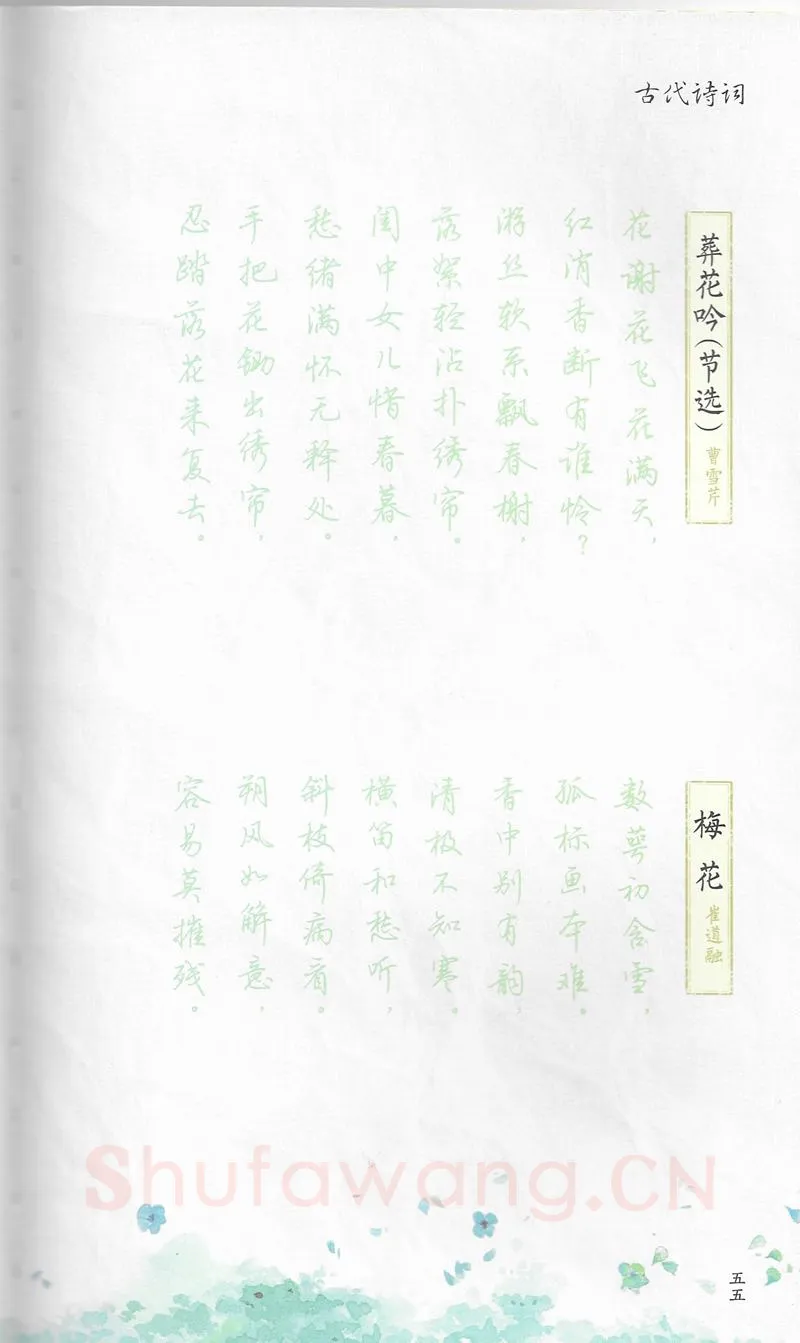 古代诗词
葬花吟（节选）
曹雪芹
花谢花飞花满天，
红消香断有谁怜？
游丝软系飘春榭，
落絮轻沾扑绣帘。
闺中女儿惜春暮，
愁绪满怀无释处。
手把花锄出绣帘，
忍踏落花来复去。
梅花
崔道融
数萼初含雪，
孤标画本难。
香中别有韵，
清极不知寒。
横笛和愁听，
斜枝倚病看。
朔风如解意，
容易莫摧残。
Shufawang.CN
五五